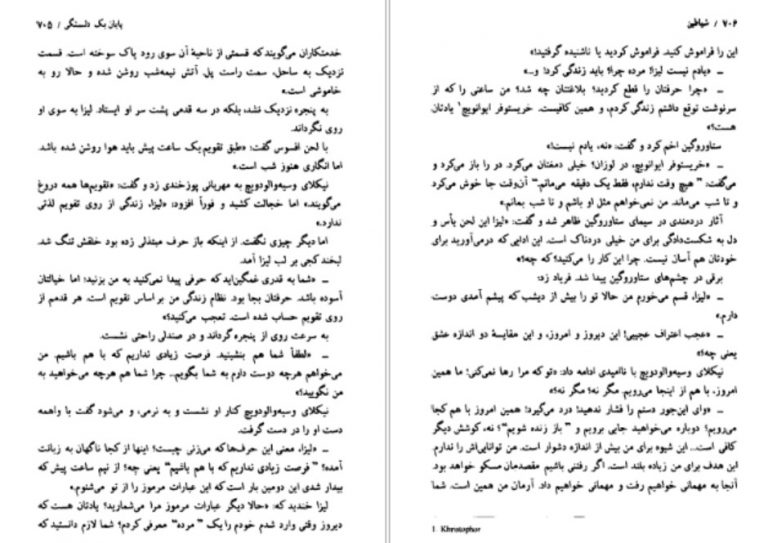 پایان یک دلبستگی / ۷۰۵
خدمتکاران می‌گویند که قسمتی از ناحیهٔ آن سوی رود پاک سوخته است. قسمت
نزدیک به ساحل، سمت راست پل. آتش نیمه‌شب روشن شده و حالا رو به
خاموشی است.»
به پنجره نزدیک نشد، بلکه در سه قدمی پشت سر او ایستاد. لیزا به سوی او
روی نگرداند.
با لحن افسوس گفت: «طبق تقویم یک ساعت پیش باید هوا روشن شده باشد.
اما انگاری هنوز شب است.»
نیکلای وسیه‌والودویچ به مهربانی پوزخندی زد و گفت: «تقویم‌ها همه دروغ
می‌گویند.» اما خجالت کشید و فوراً افزود: «لیزا، زندگی از روی تقویم لذتی
ندارد.»
اما دیگر چیزی نگفت. از اینکه باز حرف مبتذلی زده بود خلقش تنگ شد.
لبخند کجی بر لب لیزا آمد.
ــ «شما به قدری غمگین‌اید که حرفی پیدا نمی‌کنید به من بزنید! اما خیالتان
آسوده باشد. حرفتان بجا بود. نظام زندگی من بر اساس تقویم است. هر قدمم از
روی تقویم حساب شده است. تعجب می‌کنید؟»
به سرعت روی از پنجره گرداند و در صندلی راحتی نشست.
ــ «لطفاً شما هم بنشینید. فرصت زیادی نداریم که با هم باشیم. من
می‌خواهم هرچه دوست دارم به شما بگویم... چرا شما هم هرچه می‌خواهید به
من نگویید؟»
نیکلای وسیه‌والودویچ کنار او نشست و به نرمی، و می‌شود گفت با واهمه
دست او را در دست گرفت.
ــ «لیزا، معنی این حرف‌ها که می‌زنی چیست؟ اینها از کجا ناگهان به زبانت
آمده؟ ” فرصت زیادی نداریم که با هم باشیم“ یعنی چه؟ از نیم ساعت پیش که
بیدار شدی این دومین بار است که این عبارات مرموز را از تو می‌شنوم.»
لیزا خندید که: «حالا دیگر عبارات مرموز مرا می‌شمارید؟ یادتان هست که
دیروز وقتی وارد شدم خودم را یک ” مرده“ معرفی کردم؟ شما لازم دانستید که
۷۰۶ / شیاطین
این را فراموش کنید. فراموش کردید یا ناشنیده گرفتید!»
ــ «یادم نیست لیزا! مرده چرا؟! باید زندگی کرد! و...»
ــ «چرا حرفتان را قطع کردید؟ بلاغتتان چه شد؟ من ساعتی را که از
سرنوشت توقع داشتم زندگی کردم، و همین کافیست. خریستوفر ایوانویچ¹ یادتان
هست؟»
ستاوروگین اخم کرد و گفت: «نه، یادم نیست!»
ــ «خریستوفر ایوانویچ، در لوزان؟ خیلی دمغتان می‌کرد. در را باز می‌کرد و
می‌گفت: ” هیچ وقت ندارم، فقط یک دقیقه می‌مانم.“ آن‌وقت جا خوش می‌کرد
و تا شب می‌ماند. من نمی‌خواهم مثل او باشم و تا شب بمانم.»
آثار دردمندی در سیمای ستاوروگین ظاهر شد و گفت: «لیزا این لحن یأس و
دل به شکست‌دادگی برای من خیلی دردناک است. این ادایی که درمی‌آورید برای
خودتان هم آسان نیست. چرا این کار را می‌کنید؟ که چه؟»
برقی در چشم‌های ستاوروگین پیدا شد. فریاد زد:
ــ «لیزا، قسم می‌خورم من حالا تو را بیش از دیشب که پیشم آمدی دوست
دارم.»
ــ «عجب اعتراف عجیبی! این دیروز و امروز، و این مقایسهٔ دو اندازه عشق
یعنی چه؟»
نیکلای وسیه‌والودویچ با ناامیدی ادامه داد: «تو که مرا رها نمی‌کنی؛ ما همین
امروز، با هم از اینجا می‌رویم مگر نه؟ مگر نه؟»
ــ «وای این‌جور دستم را فشار ندهید! درد می‌گیرد؛ همین امروز با هم کجا
می‌رویم؟ دوباره می‌خواهید جایی برویم و ” باز زنده شویم“؟ نه، کوشش دیگر
کافی است... این شیوه برای من بیش از اندازه دشوار است. من توانایی‌اش را ندارم.
این هدف برای من زیاده بلند است. اگر رفتنی باشیم مقصدمان مسکو خواهد بود.
آنجا به مهمانی خواهیم رفت و مهمانی خواهیم داد. آرمان من همین است. شما
1 Khristophor